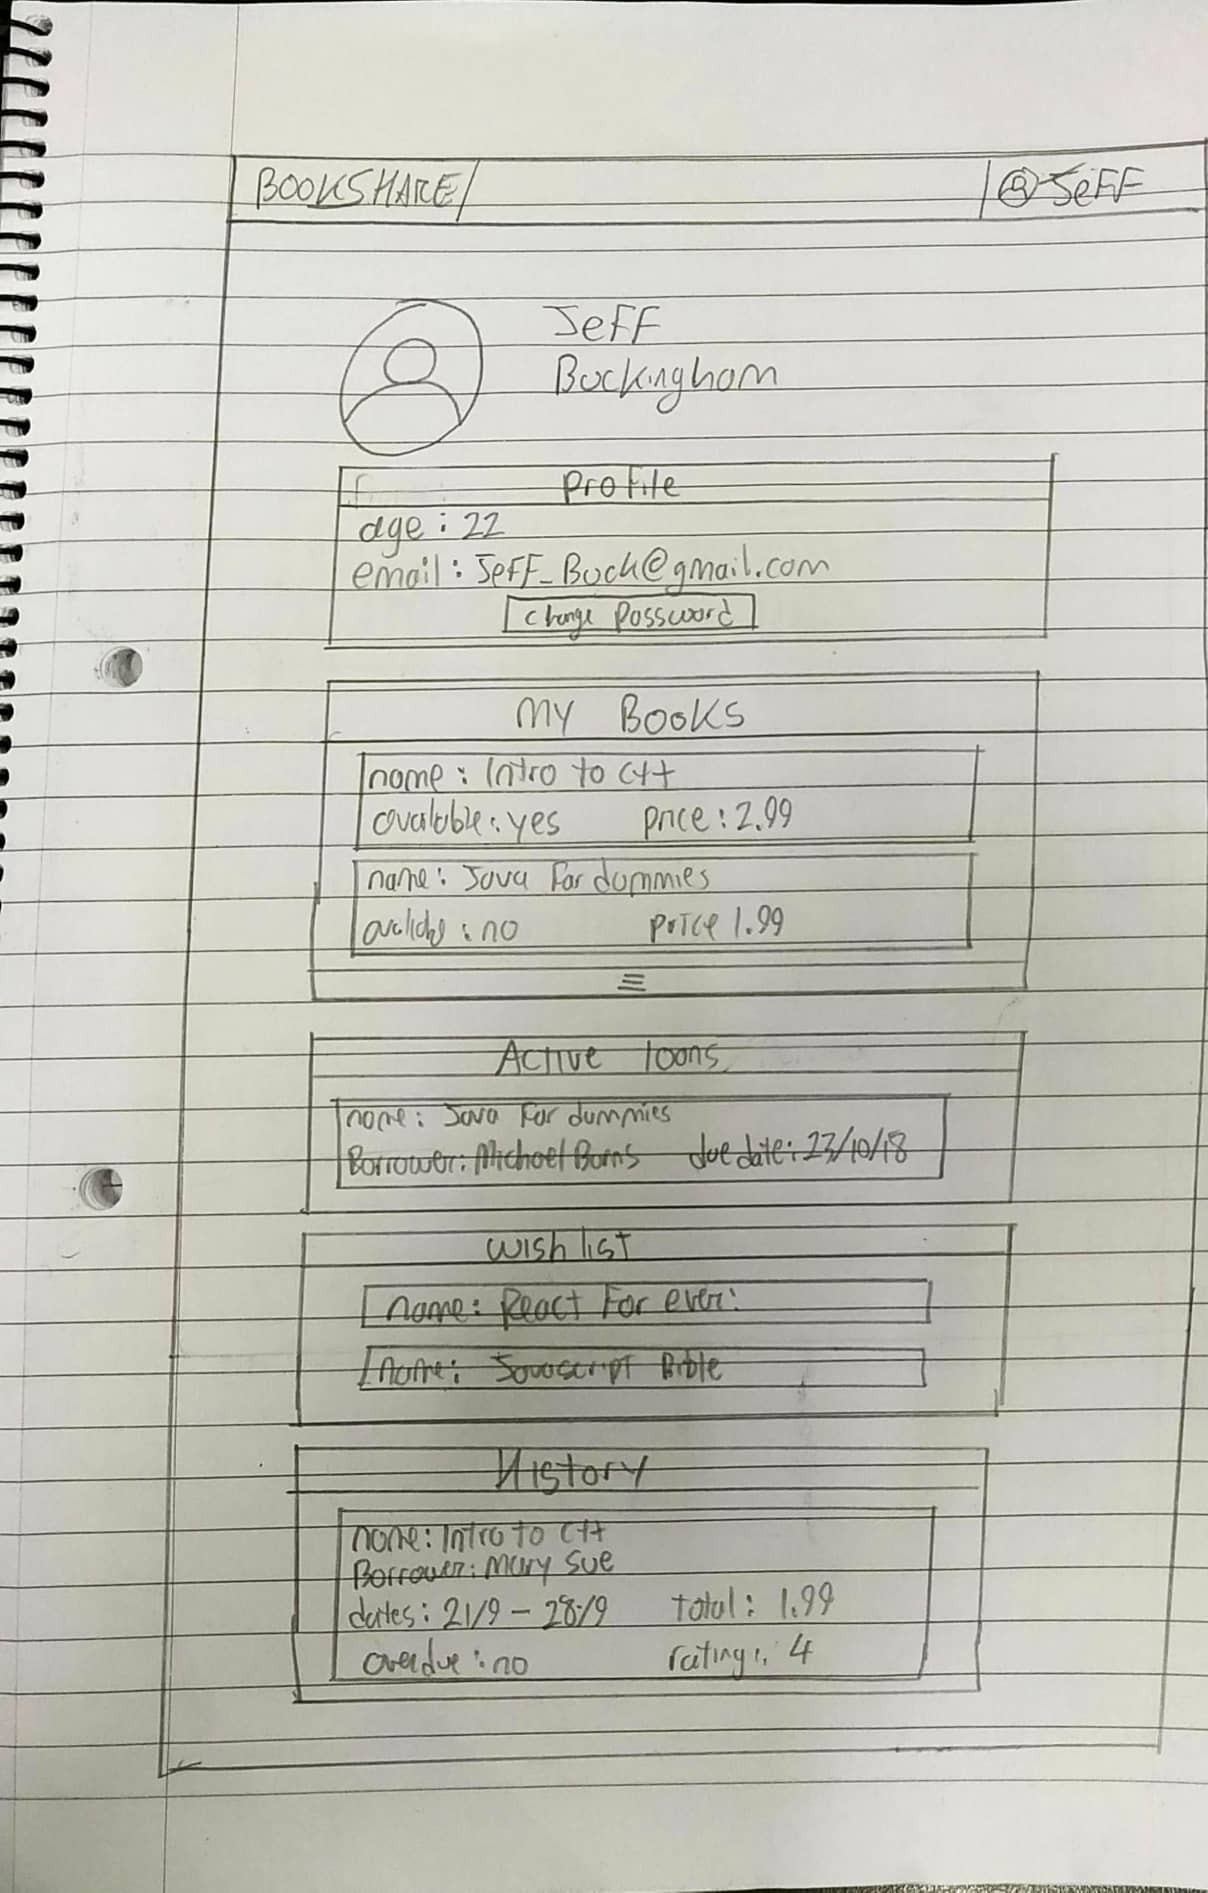 BOOKSHARE
JeFF
JeFF
Buckingham
Profile
age : 22
email : JeFF_Buck@gmail.com
change Password
MY BOOKS
name : Intro to C++
avalable : yes price : 2.99
name : Java For dummies
: no price 1.99
Active loans
name : Java For dummies
Borrower : Michael Burns due date : 23/10/18
wish list
name : React For ever :
name : Javascript Bible
History
name : Intro to C++
Borrower : Mary Sue
dates : 21/9 - 28/9 total : 1.99
overdue : no rating : 4